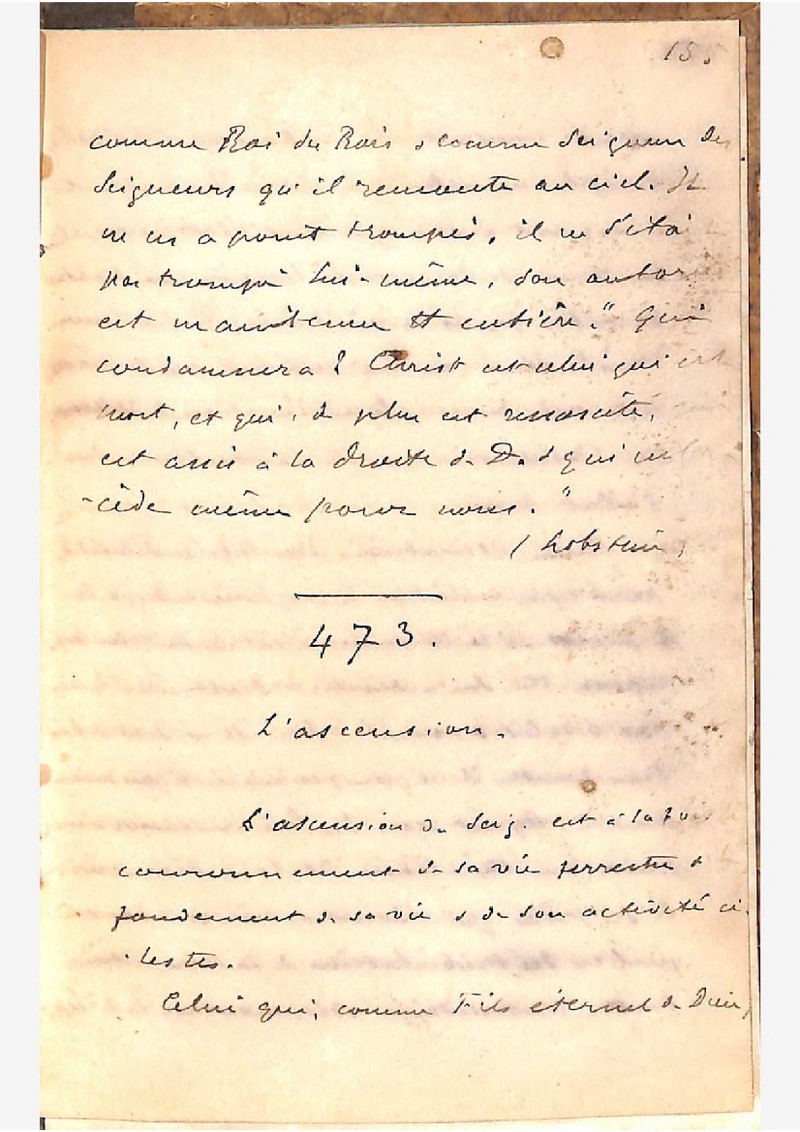 155
comme Roi des Rois & comme Seigneur des
Seigneurs qu'il remonte au ciel. Il
ne ns a point trompés, il ne s'étai
pas trompé lui-même, son autori
est maintenue et entière. " Qui
condamnera ? Christ est celui qui est
mort, et qui, de plus est ressuscité,
est assis à la droite de D. & qui in
-cède même pour nous. "
(Lobstein)
473.
L'ascension.
L'ascension du Seig. est à la fois
couronnement de sa vie terrestre &
fondement de sa vie & de son activité cé
lestes.
Celui qui, comme Fils éternel de Dieu,